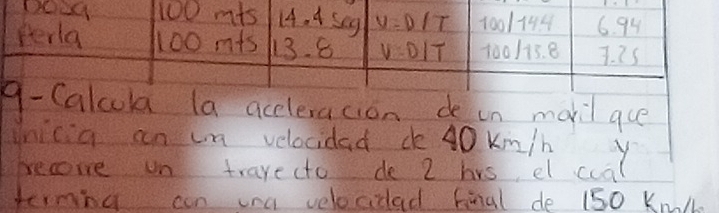 Dosa 100 mts 14.4 seg V=D/T 100/14.4 6.94
Perla 100 mts 13.8 V=D/T 100/13.8 7.25
9-Calcula la aceleración de un movil que
inicia con una velocidad de 40 Km/h y
recorre un trayecto de 2 hrs, el cual
termina con una velocidad final de 150 Km/h